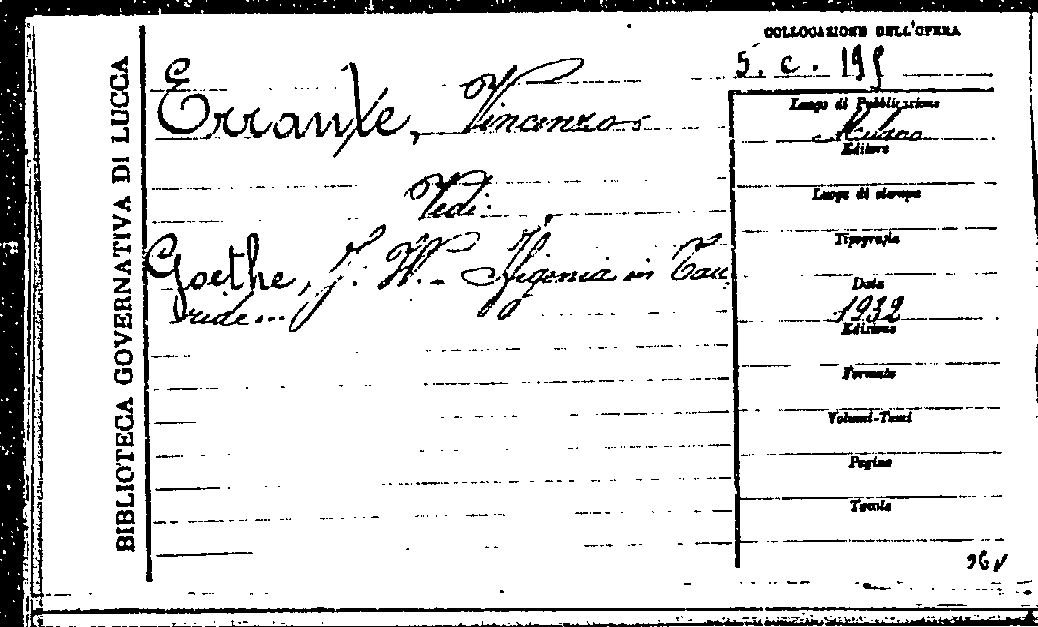 BIBLIOTECA GOVERNATIVA DI LUCCA
COLLOCAZIONE DELL'OPERA
5. c. 195
Errante, Vincenzo
Vedi:
Goethe, J. W. - Ifigenia in Tau
ride...
Luogo di Pubblicazione
Milano
Editore
Luogo di stampa
Tipografia
Data
1932
Edizione
Formato
Volumi-Tomi
Pagine
Tavole